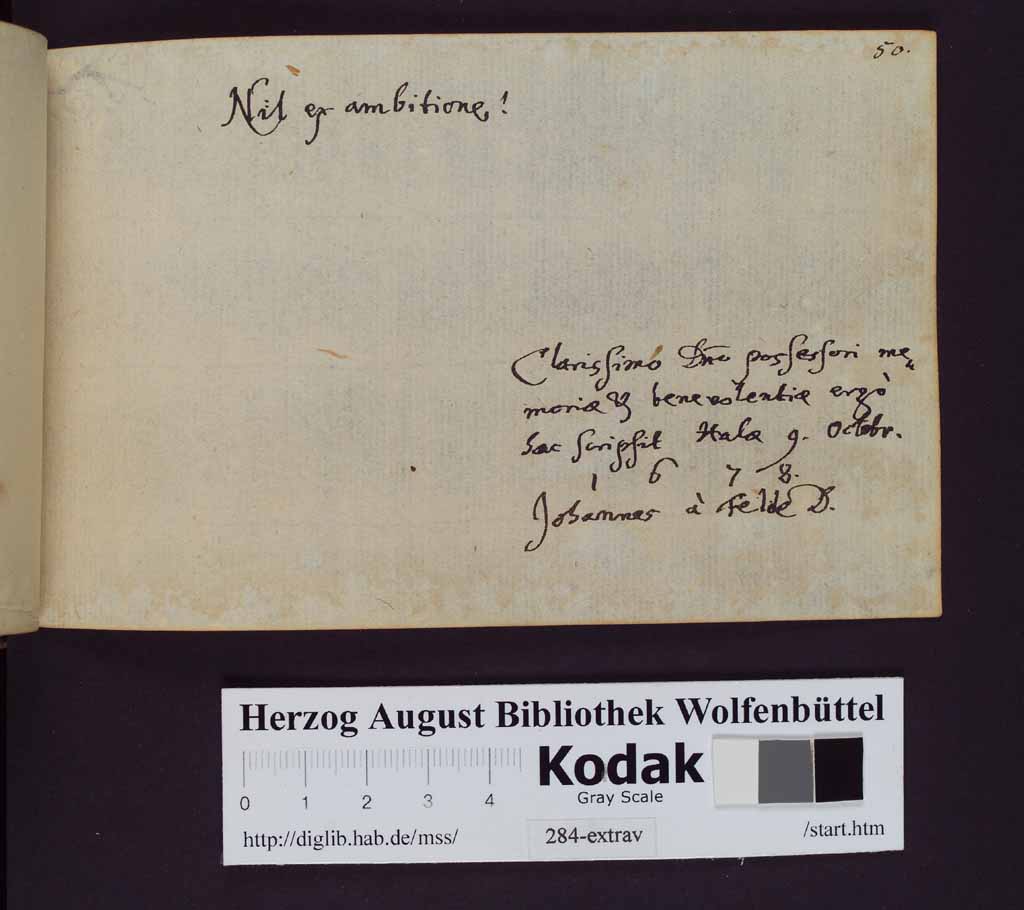 50.
Nil ex ambitione!
Clarissimo Dno possessori me„
moriæ & benevolentiæ ergò
hæc scripsit Halæ 9. Octobr.
1 6 7 8.
Johannes à Felde D.
Herzog August Bibliothek Wolfenbüttel
Kodak
Gray Scale
0 1 2 3 4
http://diglib.hab.de/mss/ 284-extrav /start.htm